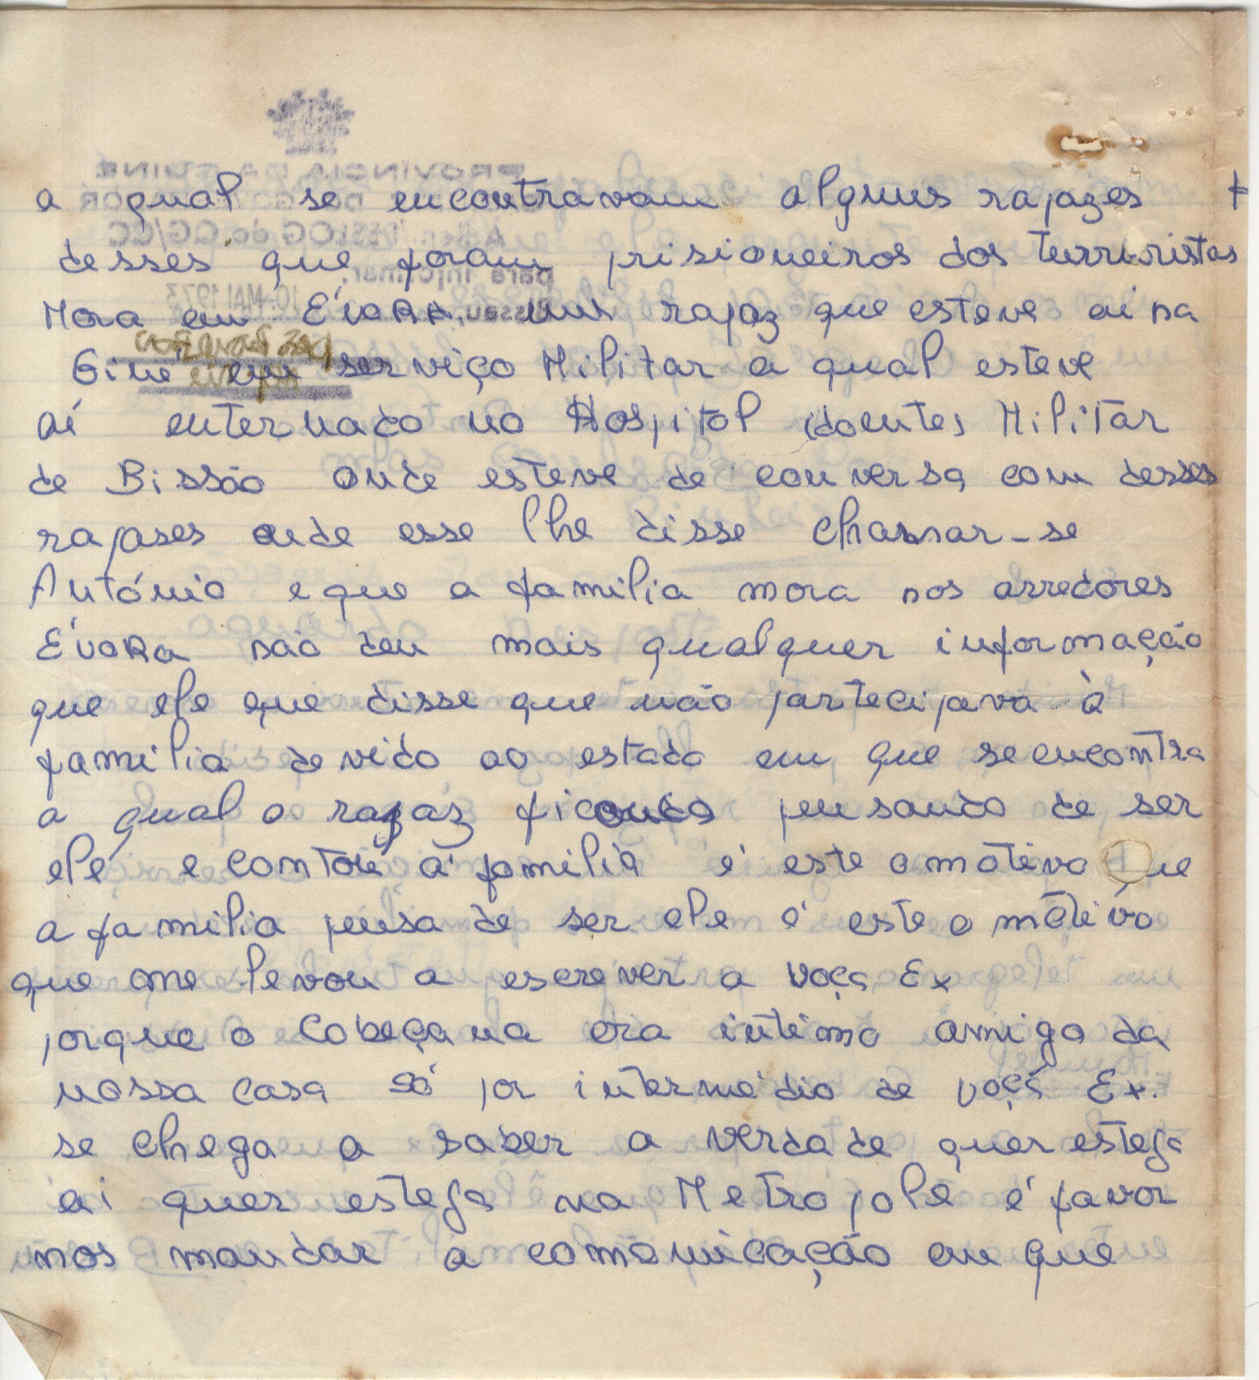 a qual se encontravam alguns rapazes
desses que foram prisioneiros dos turriristas
Mora em ÉvoRA um rapaz que esteve ai na
Giné em serviço Militar a qual esteve
aí enternado no Hospital (doentes) Militar
de Bissão onde esteve de conversa com desses
rapases onde esse lhe disse chamar-se
António e que a familia mora nos arredores
ÉvoRa não deu mais qualquer informação
que ele que disse que não partecipava à
familia devido ao estado em que se encontra
a qual o rapaz ficando pensando de ser
ele e contou á familia é este o motivo que
a familia pensa de ser ele é este o motivo
que me levou a escrever a voçs Ex
porque o Cobeçana era intimo amigo da
nossa casa só por intermédio de voçs Ex.
se chega a saber a verdade quer esteja
ai quer esteja na Metropole é favor
nos mandar a comonicação em que
PROVÍNCIA DA GUINÉ
para informar.
Bissau, 10-MAI 1973